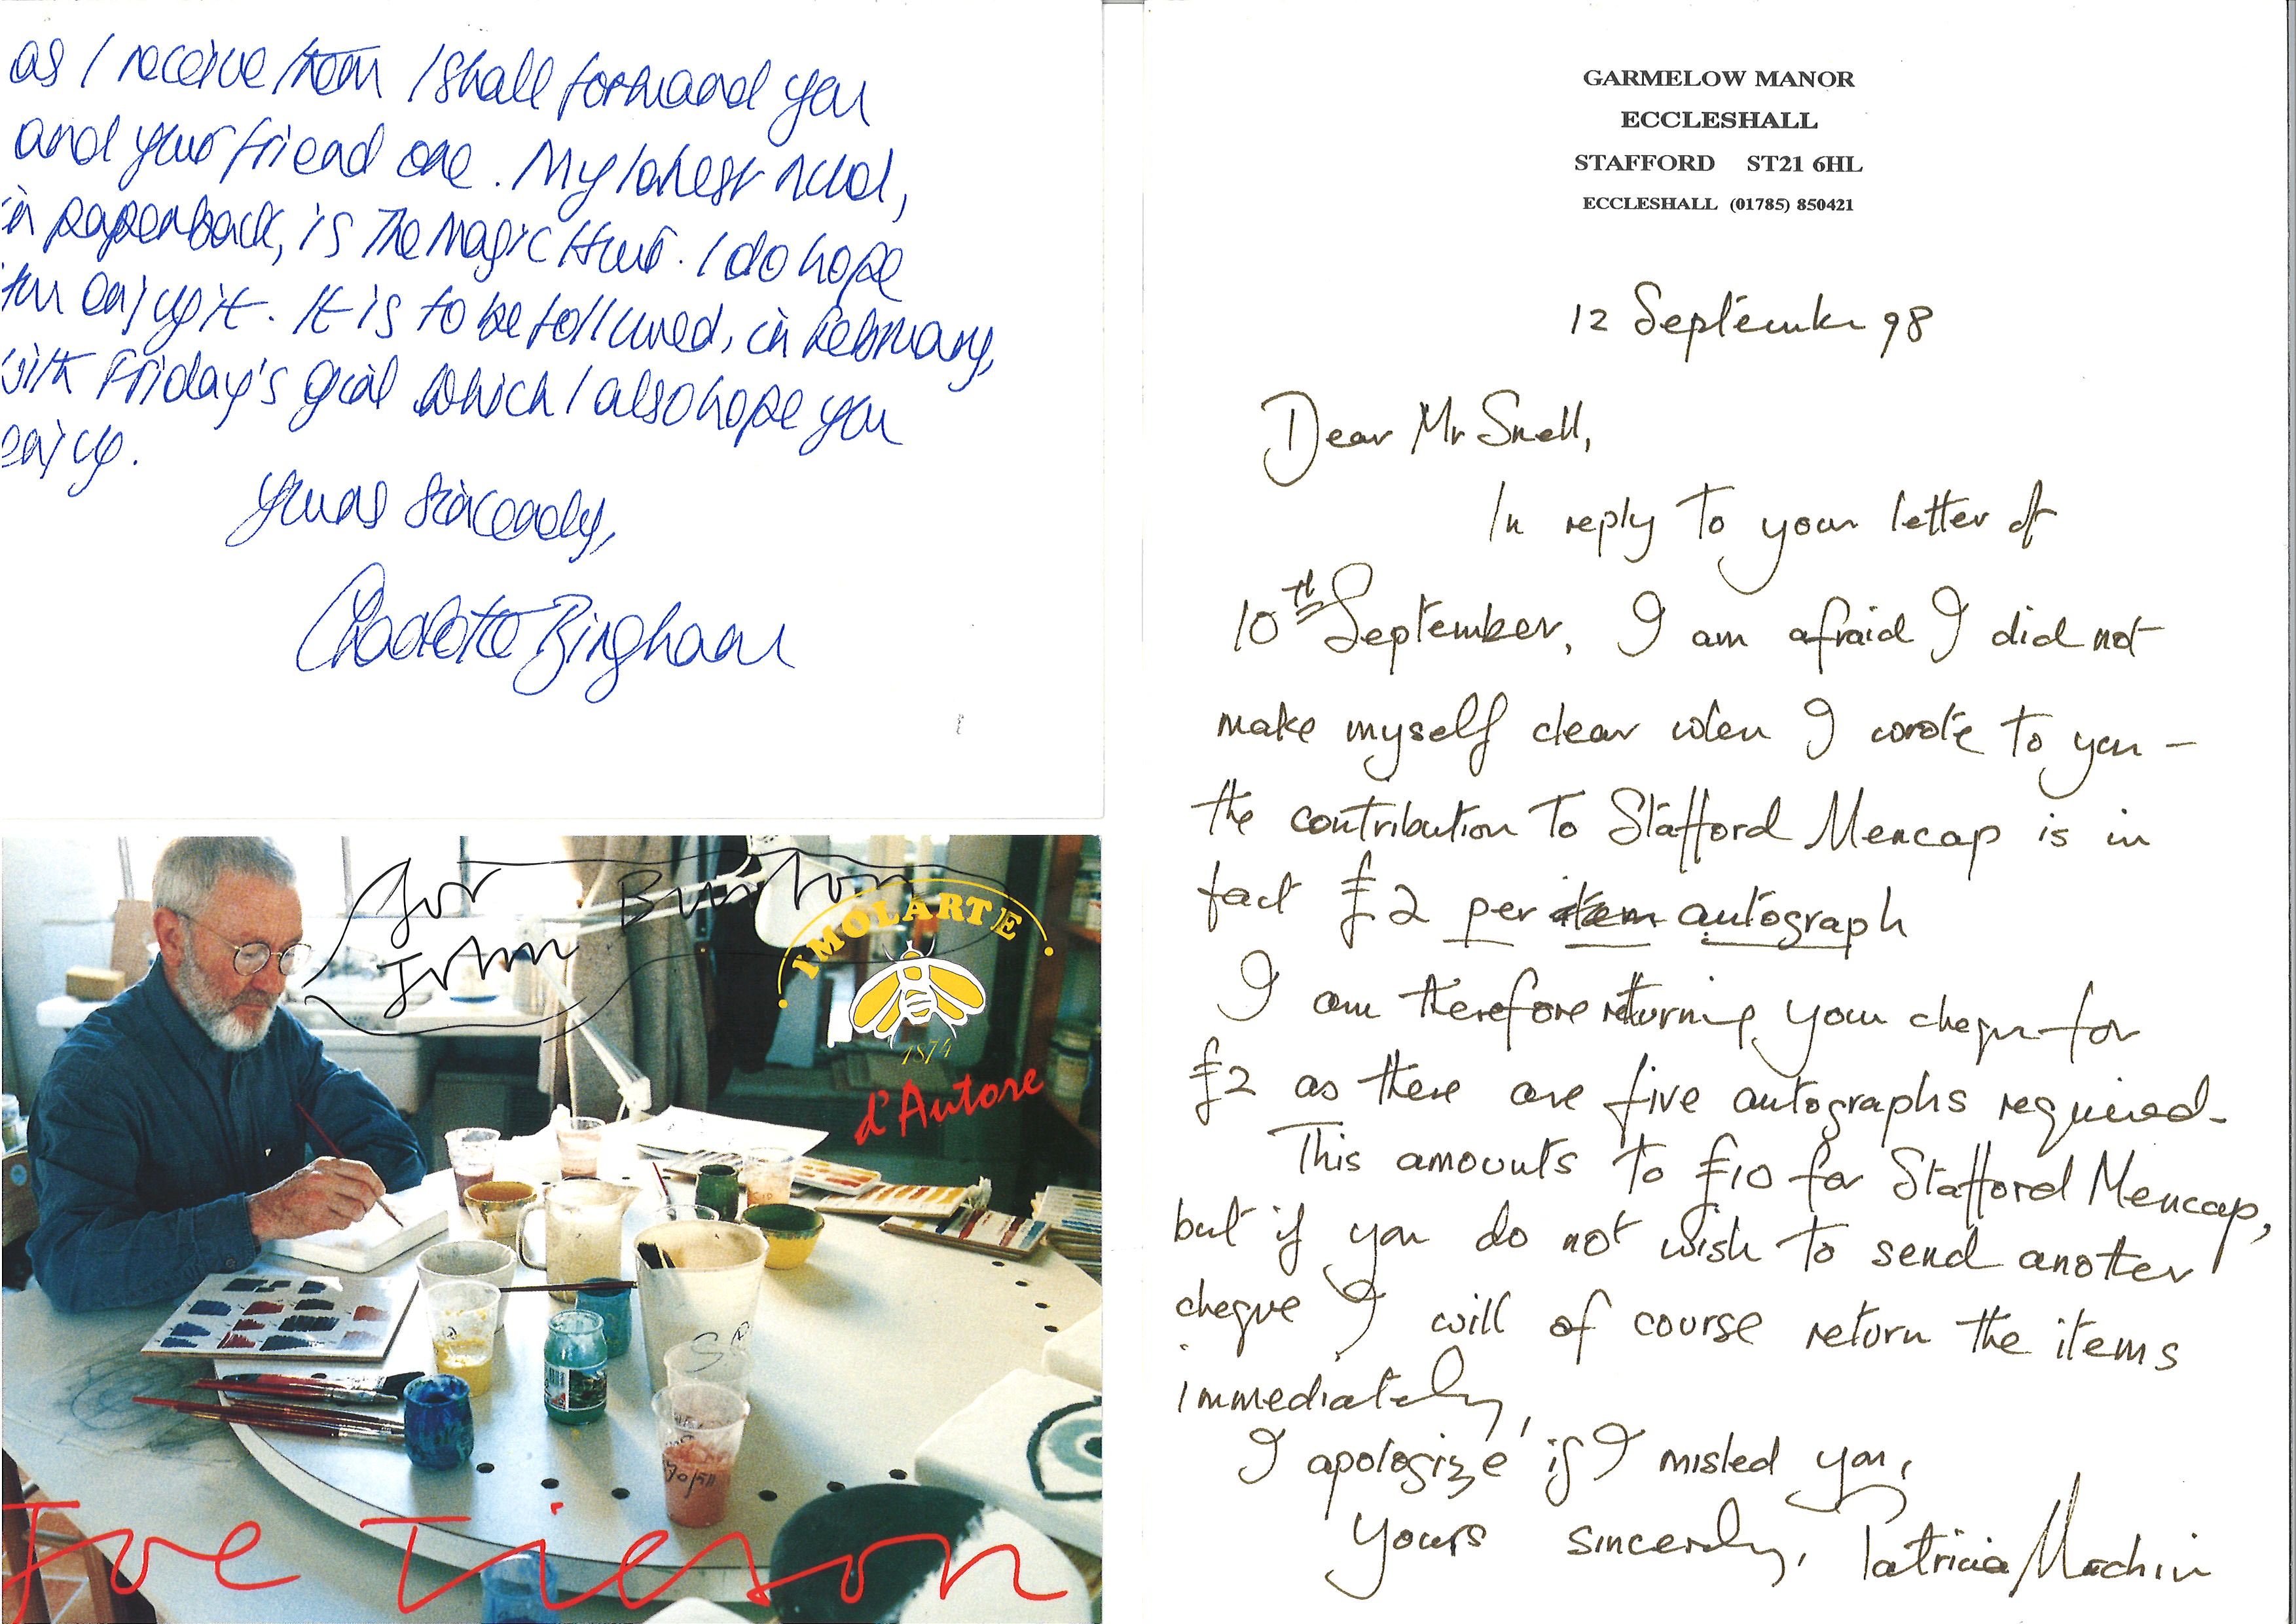 as I receive them I shall forward you
and your friend one. My latest novel,
in paperback, is The Magic Hour. I do hope
you enjoy it. It is to be followed, in February,
with Friday's girl which I also hope you
enjoy.
Yours sincerely,
Charlotte Bingham
for
John Burton
IMOLARTE
1874
d'Autore
Joe Tilson
GARMELOW MANOR
ECCLESHALL
STAFFORD ST21 6HL
ECCLESHALL (01785) 850421
12 September 98
Dear Mr Snell,
In reply to your letter of
10th September, I am afraid I did not
make myself clear when I wrote to you –
the contribution to Stafford Mencap is in
fact £2 per item autograph
I am therefore returning your cheque for
£2 as there are five autographs required.
This amounts to £10 for Stafford Mencap,
but if you do not wish to send another
cheque I will of course return the items
immediately,
I apologize if I misled you,
Yours sincerely, Patricia Machin